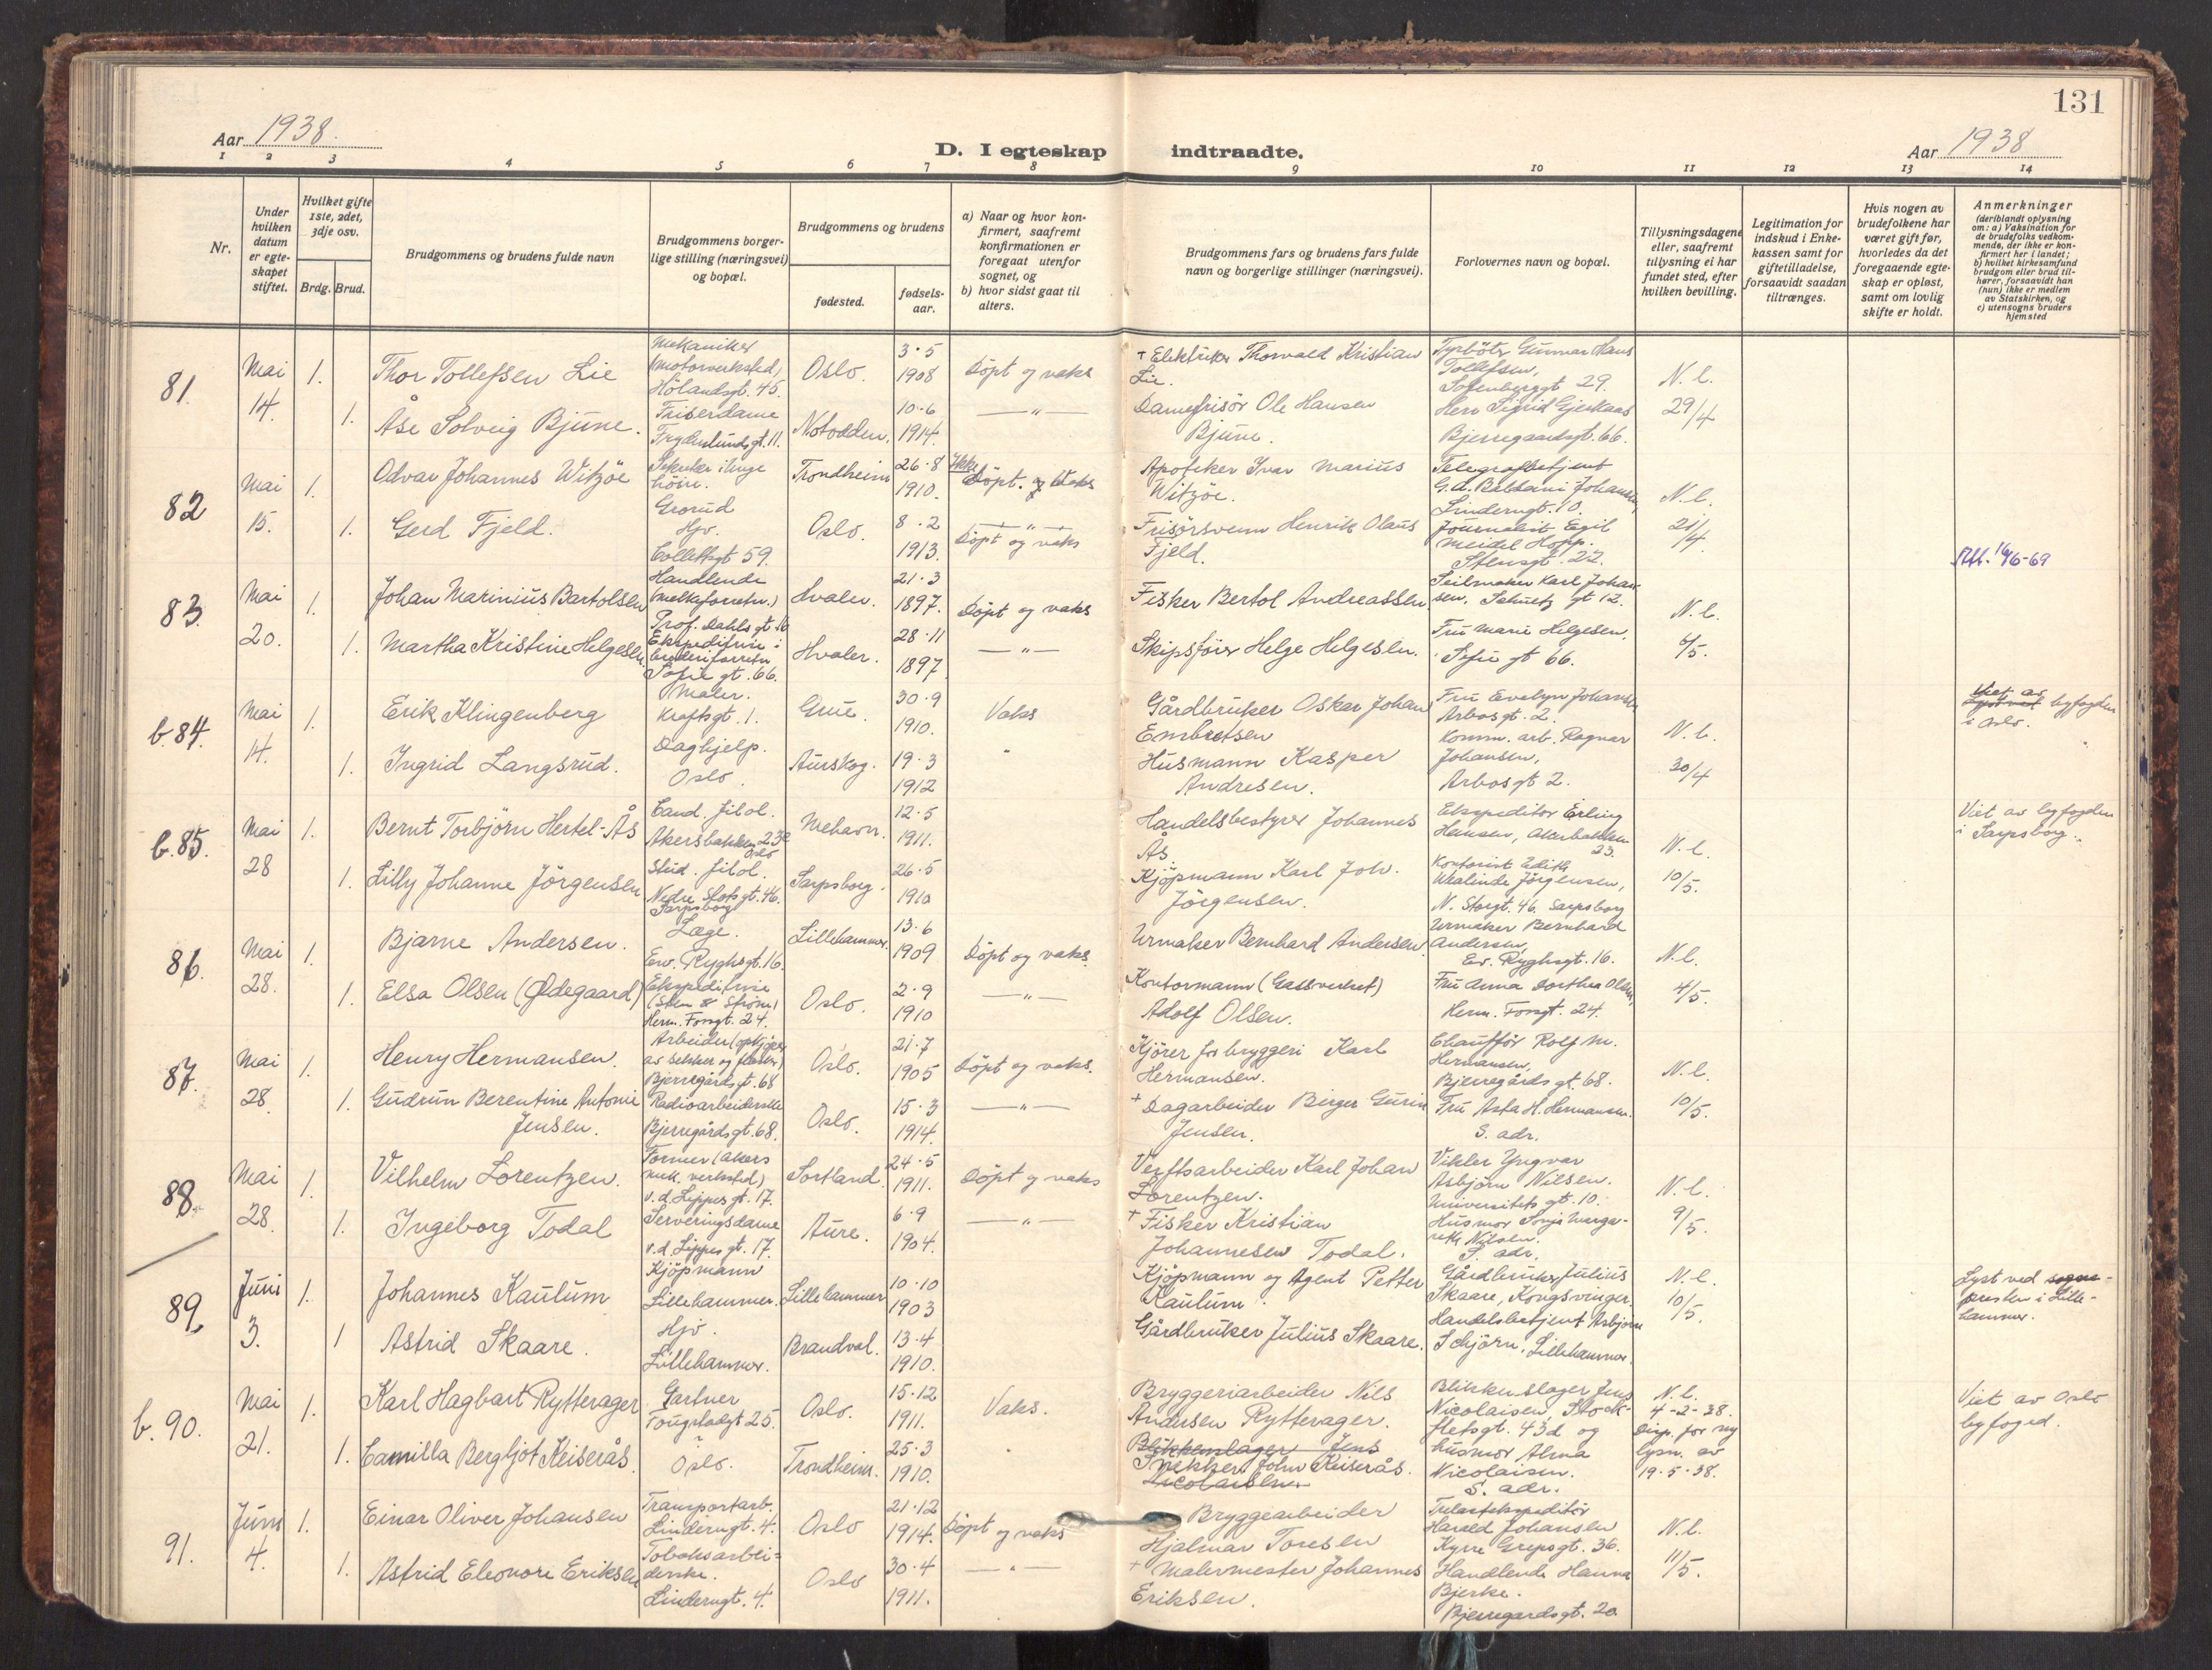 131
Aar 1938.
D. I egteskap indtraadte.
Aar 1938
1 2 3 4 5 6 7 8 9 10 11 12 13 14
Nr.
Under hvilken datum er egteskapet stiftet.
Hvilket gifte 1ste, 2det, 3dje osv.
Brdg. Brud.
Brudgommens og brudens fulde navn
Brudgommens borgerlige stilling (næringsvei) og bopæl.
Brudgommens og brudens
fødested.
fødselsaar.
a) Naar og hvor konfirmert, saafremt konfirmationen er foregaat utenfor sognet, og
b) hvor sidst gaat til alters.
Brudgommens fars og brudens fars fulde navn og borgerlige stillinger (næringsvei).
Forlovernes navn og bopæl.
Tillysningsdagene eller, saafremt tillysning ei har fundet sted, efter hvilken bevilling.
Legitimation for indskud i Enkekassen samt for giftetilladelse, forsaavidt saadan tiltrænges.
Hvis nogen av brudefolkene har været gift før, hvorledes da det foregaaende egteskap er opløst, samt om lovlig skifte er holdt.
Anmerkninger
(deriblandt oplysning om: a) Vaksination for de brudefolks vedkommende, der ikke er konfirmert her i landet; b) hvilket kirkesamfund brudgom eller brud tilhører, forsaavidt han (hun) ikke er medlem av Statskirken, og c) utensogns bruders hjemsted
81. Mai 14. 1. Thor Tollefsen Lie
Mekaniker (motorverksted) Hölandsgt. 45.
Oslo. 3.5 1908 Döpt og vaks
+ Elektriker Thorvald Kristian Lie.
Gunnar Hans Tollefsen, Sofienberggt 29.
N. l. 29/4
1. Åse Solveig Bjune.
Friserdame Frydenlundsgt. 11.
Notodden. 10.6 1914. —"—
Damefrisör Ole Hansen Bjune.
Herr Sigrid Bjerregaardsgt. 66.
82 Mai 15. 1. Odvar Johannes Witzöe
Grorud
Trondheim 26.8 1910. Ikke Döpt. og Vaks
Apoteker Ivar Marius Witzöe.
Telegrafbetjent Johansen, Linderngt. 10.
N. l. 21/4
1. Gerd Fjeld.
Hjv. Collettsgt 59.
Oslo. 8.2 1913. —"— Döpt og vaks
Frisörsvenn Henrik Olaus Fjeld.
Journalist Egil Meidel Hopp. Stensgt. 22.
Att. 16/6-69
83. Mai 20. 1. Johan Marinius Bartolsen
Handlende (melkeforretn.) Prof. Dahls gt 16
Hvaler. 21.3 1897. Döpt og vaks
Fisker Bertol Andreassen
Seilmaker Karl Johansen. Schultz gt 12.
N. l. 6/5.
1. Martha Kristine Helgesen
Ekspeditrise i Sofie gt. 66.
Hvaler. 28.11 1897 —"—
Skipsförer Helge Helgesen.
Fru Marie Helgesen. Sofie gt 66.
b. 84. Mai 14. 1. Erik Klingenberg
Maler. Kraftsgt. 1.
Grue. 30.9 1910. Vaks
Gårdbruker Oskar Johan Embretsen
Fru Evelyn Johansen Arbosgt. 2.
N. l. 30/4
Viet av byfogden i Oslo.
1. Ingrid Langsrud.
Daghjelp. Oslo.
Aurskog. 19.3 1912 "
Husmann Kasper Andresen.
Komm. arb. Ragnar Johansen, Arbosgt 2.
b. 85. Mai 28 1. Bernt Torbjörn Hertel-Ås
Cand. filol. Akersbakken 23c Oslo
Mehavn. 12.5 1911.
Handelsbestyrer Johannes Ås.
Ekspeditör Erling Hansen, Akersbakken 23.
N. l. 10/5.
Viet av byfogden i Sarpsborg.
1. Lilly Johanne Jörgensen
Stud. filol. Nedre Slotsgt. 46. Sarpsborg
Sarpsborg. 26.5 1910
Kjöpmann Karl Joh. Jörgensen.
Kontorist Edith Jörgensen, N. Storgt. 46. Sarpsborg
86. Mai 28. 1. Bjarne Andersen.
Læge. Ew. Ryghsgt. 16.
Lillehammer. 13.6 1909 Döpt og vaks.
Urmaker Bernhard Andersen
Urmaker Bernhard Andersen, Ew. Ryghsgt. 16.
N. l. 4/5.
1. Elsa Olsen (Ødegaard)
Ekspeditrise (Steen & Ström) Herm. Fossgt. 24.
Oslo. 2.9 1910 —"—
Kontormann (Gassverket) Adolf Olsen.
Fru Anna Dorthea Olsen, Herm. Fossgt. 24.
87. Mai 28. 1. Henry Hermansen.
Arbeider (opkjöper av sekker og flasker) Bjerregårdsgt. 68
Oslo. 21.7 1905 Döpt og vaks.
Kjörer for bryggeri Karl Hermansen.
Chaufför Rolf M. Hermansen, Bjerregårdsgt. 68.
N. l. 10/5.
1. Gudrun Berentine Antonie Jensen.
Radioarbeiderske Bjerregårdsgt. 68.
Oslo. 15.3 1914. —"—
+ Dagarbeider Birger Gurin Jensen.
Fru Asta H. Hermansen. S. adr.
88. Mai 28. 1. Vilhelm Lorentzen.
Former (Akers mek. verksted) v. d. Lippes gt. 17.
Sortland. 24.5 1911. Döpt og vaks
Verftsarbeider Karl Johan Lorentzen.
Vikler Yngvar Asbjörn Nilsen. Universitetsgt. 10.
N. l. 9/5.
1. Ingeborg Todal
Serveringsdame v. d. Lippes gt. 17.
Aure. 6.9 1904. —"—
+ Fisker Kristian Johannesen Todal.
Husmor Sonja Margareth Nilsen. S. adr.
89. Juni 3. 1. Johannes Kaulum
Kjöpmann Lillehammer.
Lillehammer 10.10 1903
Kjöpmann og Agent Petter Kaulum.
Gårdbruker Julius Skaare, Kongsvinger.
N. l. 10/5.
Lyst ved sogne-presten i Lillehammer.
1 Astrid Skaare.
Hjv. Lillehammer.
Brandval. 13.4 1910.
Gårdbruker Julius Skaare.
Handelsbetjent Asbjörn Schjörn. Lillehammer.
b. 90. Mai 21. 1. Karl Hagbart Rytterager
Gartner Tougstadgt 25.
Oslo. 15.12 1911. Vaks.
Bryggeriarbeider Nils Andersen Rytterager.
Blikkenslager Jens Nicolaisen, Stockfletsgt. 43d og husmor Alma Nicolaisen. S. adr.
N. l. 4-2-38. Disp. for ny lysn. av 19.5.38.
Viet av Oslo byfoged.
1. Camilla Bergljot Keiserås.
Oslo.
Trondheim. 25.3 1910. "
Blikkenslager Jens Nicolaisen
Snekker John Keiserås.
91. Juni 4. 1. Einar Oliver Johansen
Transportarb. Linderngt. 4.
Oslo 21.12 1914. Döpt og vaks
Bryggearbeider Hjalmar Toresen
Trelastekspeditör Harald Johansen Kyrre Grepsgt. 36.
N. l. 11/5.
1. Astrid Eleonore Eriksen
Tobaksarbeiderske. Linderngt. 4.
Oslo 30.4 1911. —"—
+ Malermester Johannes Eriksen.
Handlende Hanna Bjerke. Bjerregardsgt. 20.